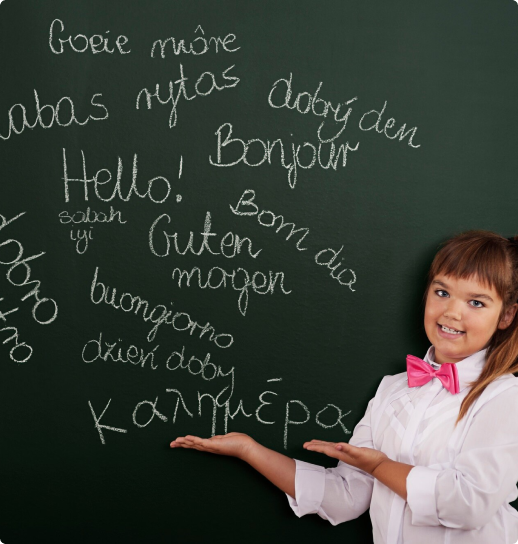 Goeie môre
labas rytas
dobrý den
Bonjour
Hello!
sabah
iyi
Bom dia
Guten
morgen
buongiorno
dzień doby
καλημέρα